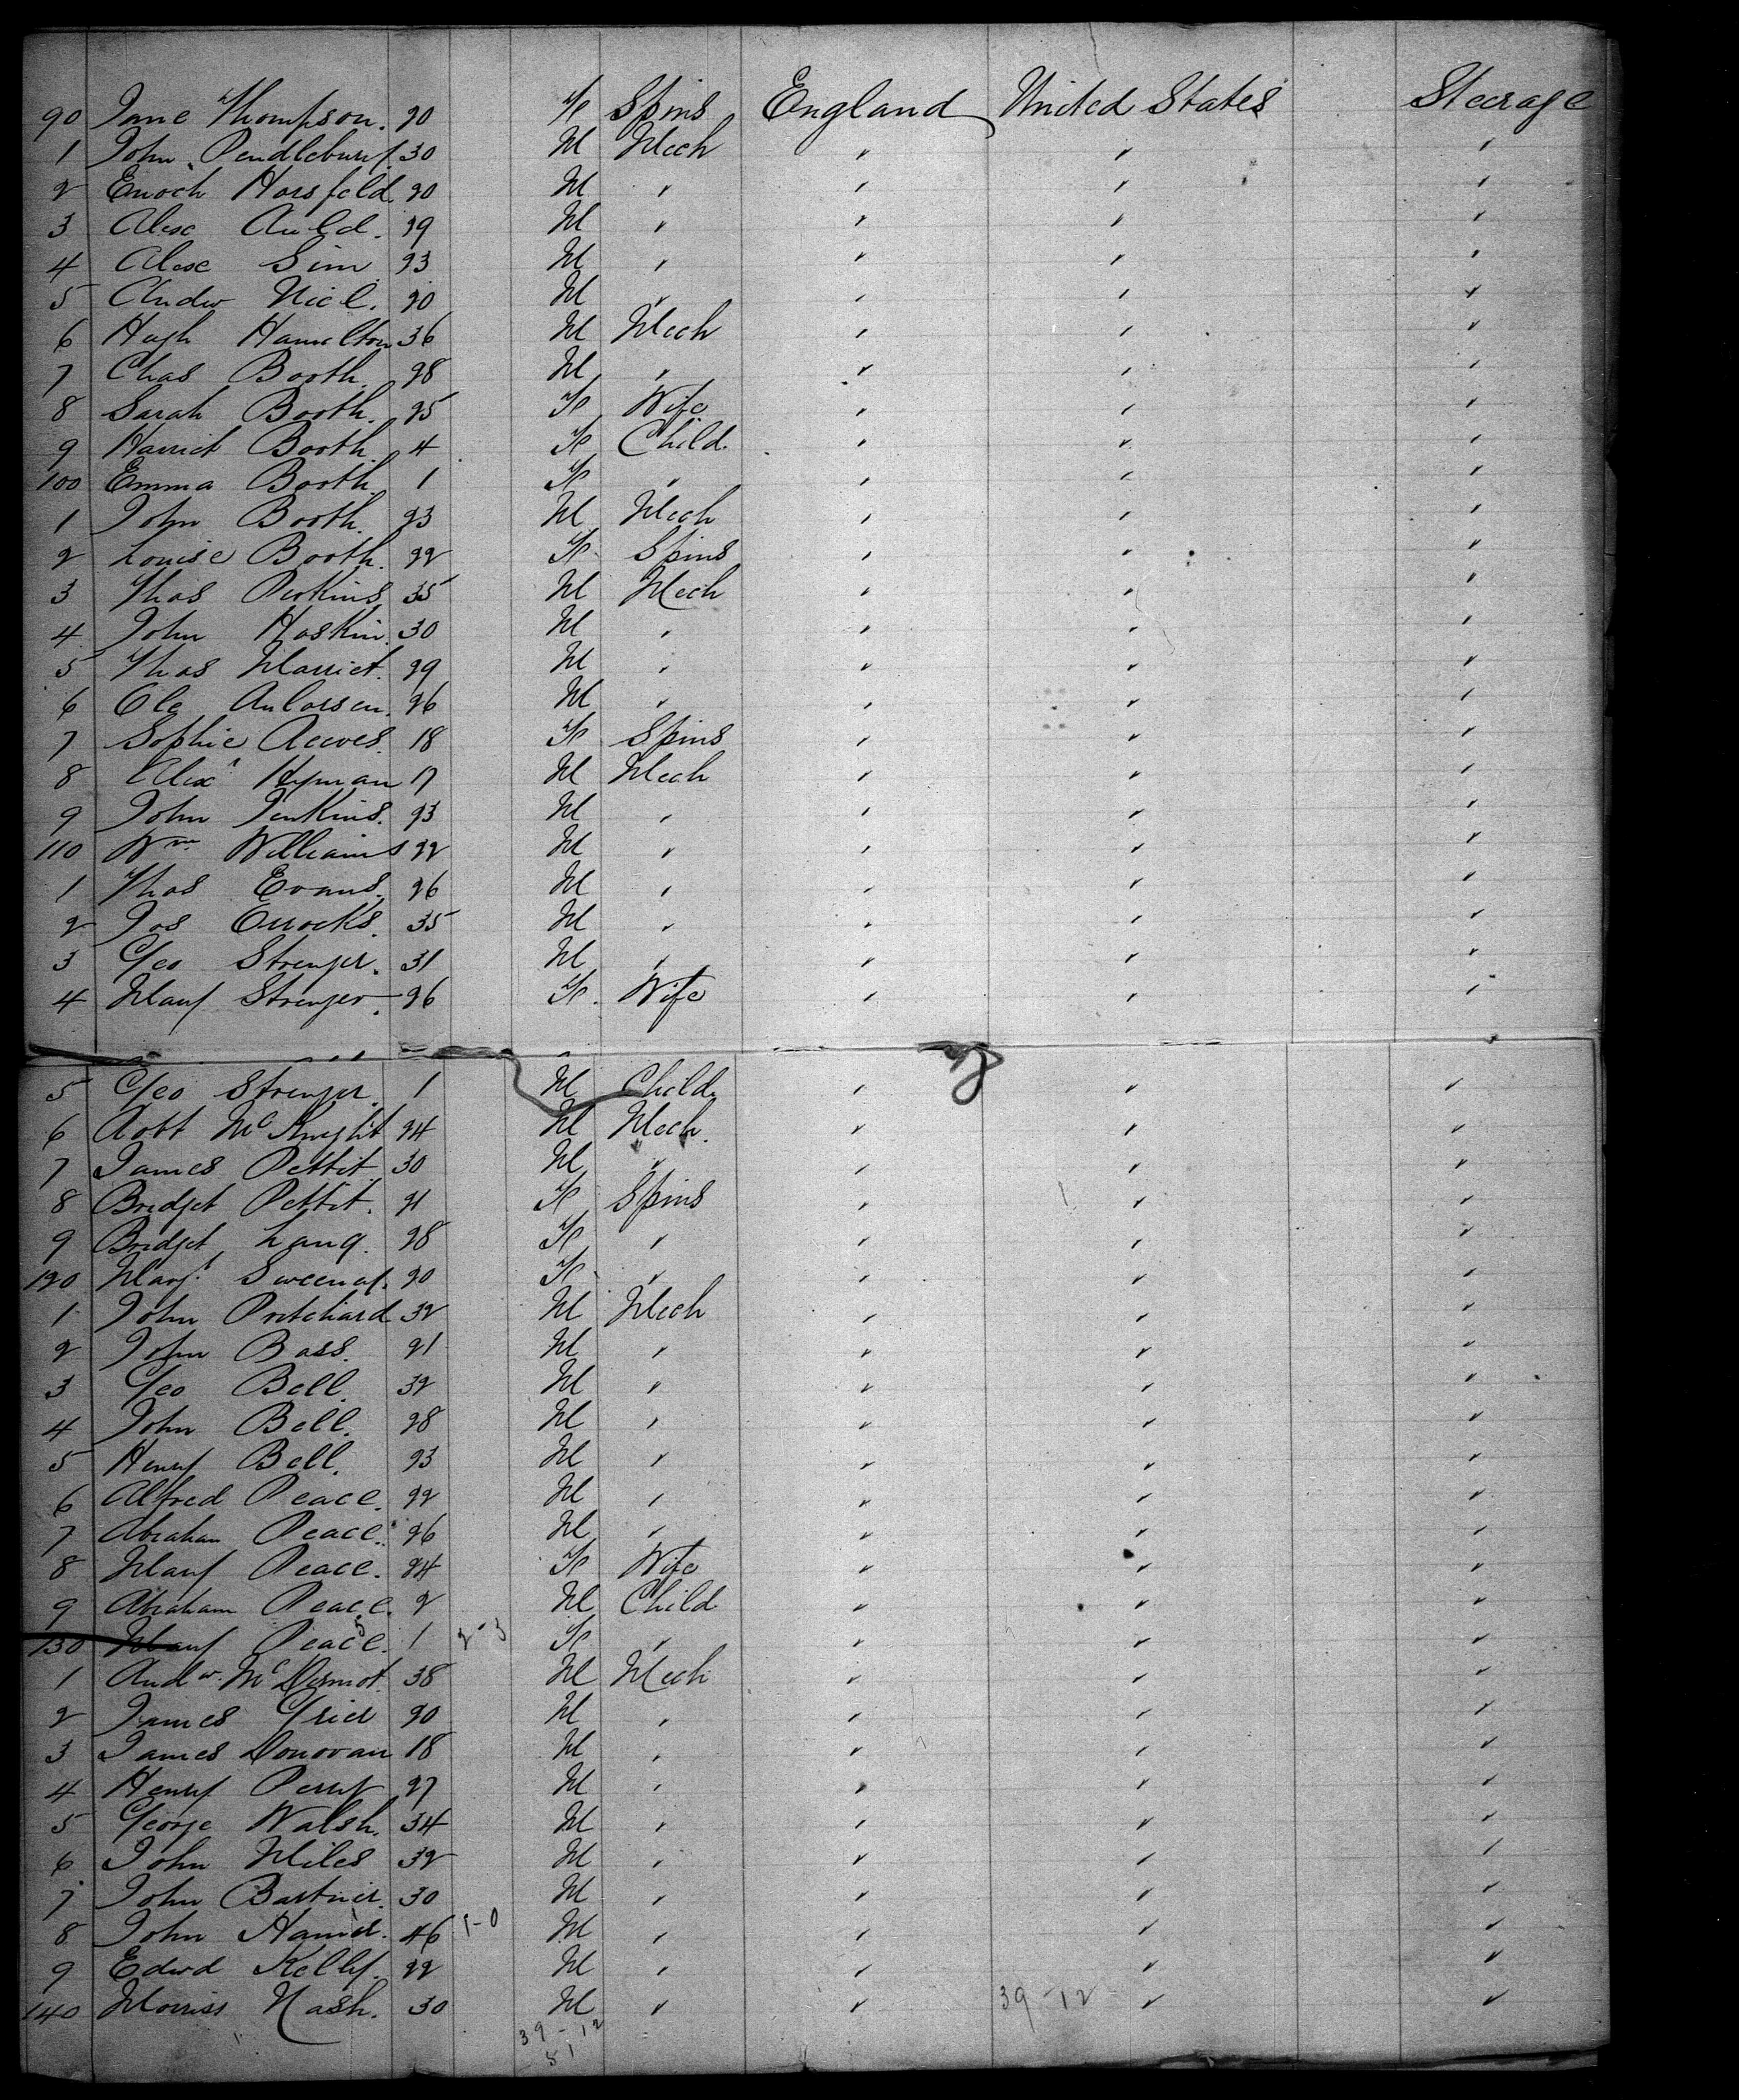 90 Jane Thompson. 20 F Spins England United States Steerage
1 John Pendlebury 30 M Mech " " "
2 Enoch Horsfeld. 20 M " " " "
3 Alexe Auld. 29 M " " " "
4 Alexe Sim 23 M " " " "
5 Andw Nicl. 20 M " " " "
6 Hugh Hamilton 36 M Mech " " "
7 Chas Booth. 28 M " " " "
8 Sarah Booth. 25 F Wife " " "
9 Harriet Booth. 4 F Child. " " "
100 Emma Booth. 1 F " " " "
1 John Booth. 23 M Mech " " "
2 Louise Booth. 22 F Spins " " "
3 Thos Perkins 35 M Mech " " "
4 John Hoskin. 30 M " " " "
5 Thos Marriet. 29 M " " " "
6 Ole Anlorsen. 26 M " " " "
7 Sophie Reeves. 18 F Spins " " "
8 Alexr Hyman 17 M Mech " " "
9 John Jenkins. 23 M " " " "
110 Wm Williams 22 M " " " "
1 Thos Evans. 26 M " " " "
2 Jos Orrocks. 35 M " " " "
3 Geo Strenger. 31 M " " " "
4 Mary Strenger 26 F Wife " " "
5 Geo Strenger. 1 M Child " " "
6 Robt McKnight 24 M Mech. " " "
7 James Pettit 30 M " " " "
8 Bridget Pettit. 21 F Spins " " "
9 Bridget Lang. 28 F " " " "
120 Margt Sweeney. 20 F " " " "
1 John Pritchard 32 M Mech " " "
2 John Bass. 21 M " " " "
3 Geo Bell. 32 M " " " "
4 John Bell. 28 M " " " "
5 Henry Bell. 23 M " " " "
6 Alfred Peace. 22 M " " " "
7 Abraham Peace. 26 M " " " "
8 Mary Peace. 24 F Wife " " "
9 Abraham Peace. 2 M Child " " "
130 Mary Peace. 1 2-3 F " " " "
1 Andw. McDermot. 38 M Mech " " "
2 James Grier 20 M " " " "
3 James Donovan 18 M " " " "
4 Henry Perry 27 M " " " "
5 George Walsh. 34 M " " " "
6 John Miles 32 M " " " "
7 John Bartner. 30 M " " " "
8 John Hamer. 46 1-0 M " " " "
9 Edwd Kelly. 22 M " " " "
140 Morriss Nash. 30 M " " 39-12 " "
39-12
51